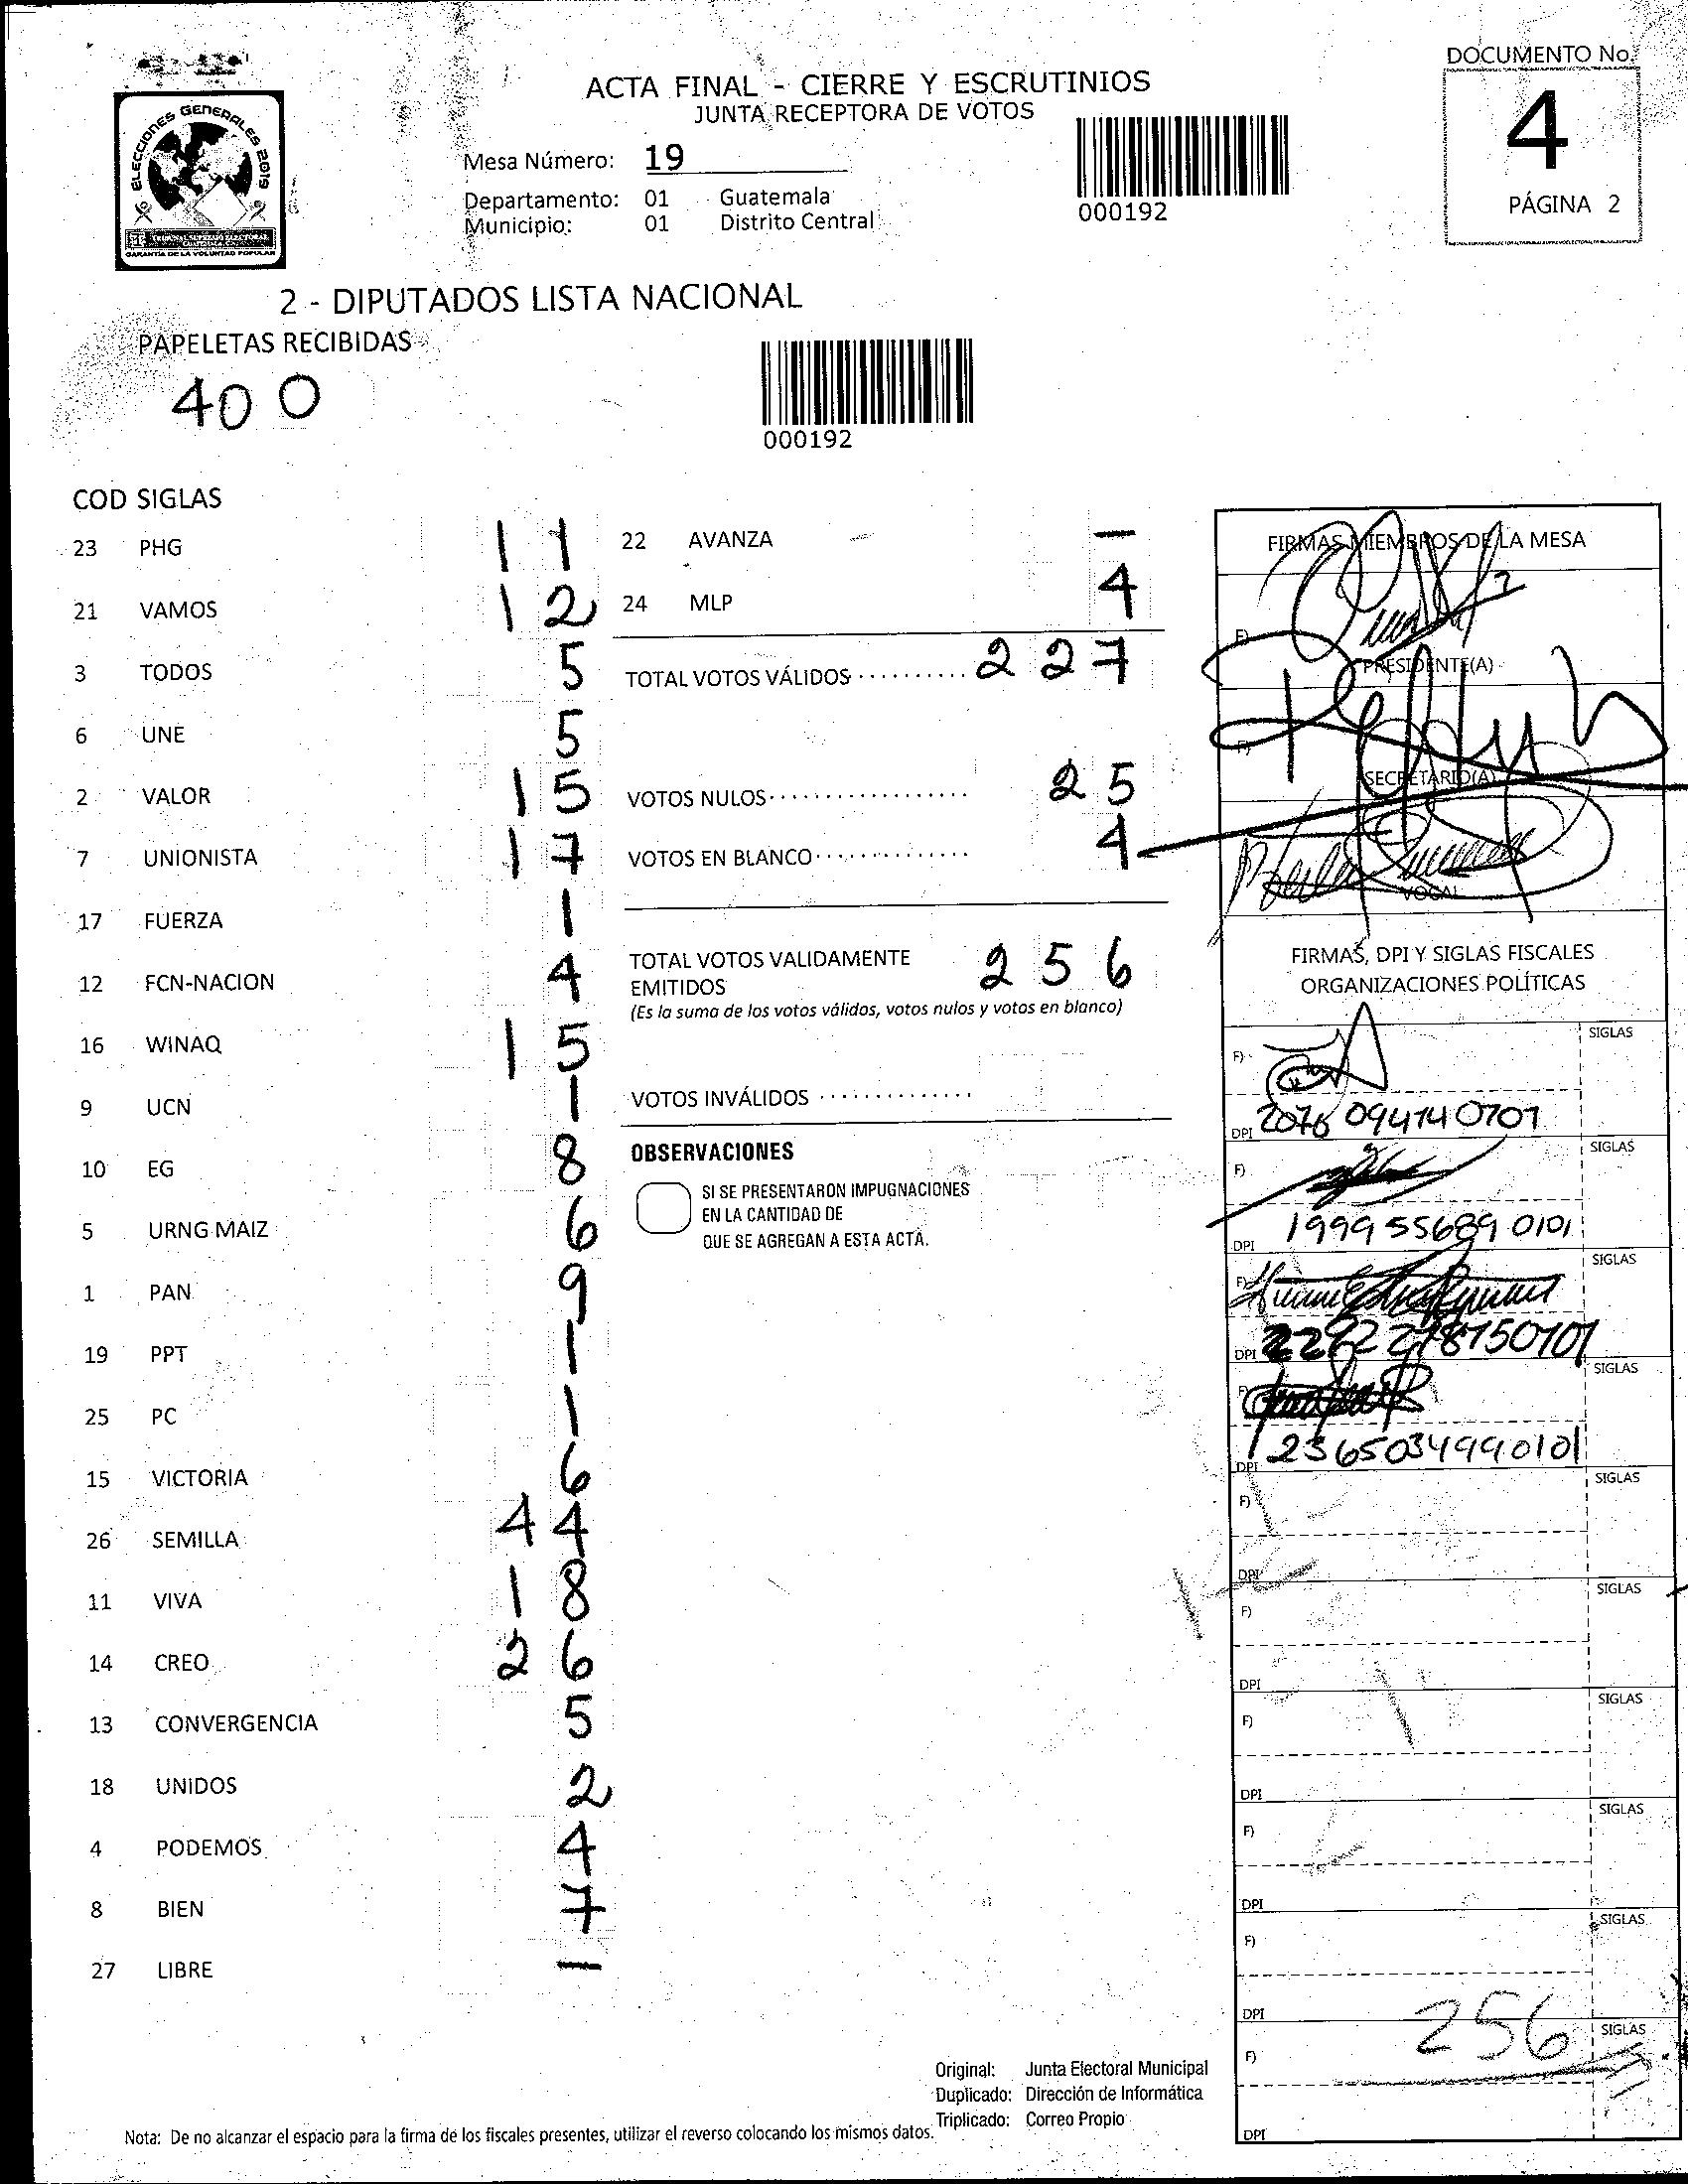 ELECCIONES GENERALES 2019
TRIBUNAL SUPREMO ELECTORAL
GUATEMALA, C.A.
GARANTÍA DE LA VOLUNTAD POPULAR
ACTA FINAL - CIERRE Y ESCRUTINIOS
JUNTA RECEPTORA DE VOTOS
Mesa Número: 19
Departamento: 01 Guatemala
Municipio: 01 Distrito Central
000192
DOCUMENTO No.
4
PÁGINA 2
2 - DIPUTADOS LISTA NACIONAL
PAPELETAS RECIBIDAS
400
000192
COD SIGLAS
23 PHG 11
21 VAMOS 12
3 TODOS 5
6 UNE 5
2 VALOR 15
7 UNIONISTA 17
17 FUERZA 1
12 FCN-NACION 4
16 WINAQ 15
9 UCN 1
10 EG 8
5 URNG MAIZ 6
1 PAN 9
19 PPT 1
25 PC 1
15 VICTORIA 6
26 SEMILLA 44
11 VIVA 18
14 CREO 26
13 CONVERGENCIA 5
18 UNIDOS 2
4 PODEMOS 4
8 BIEN 7
27 LIBRE —
22 AVANZA —
24 MLP 4
TOTAL VOTOS VÁLIDOS .......... 227
VOTOS NULOS .................. 25
VOTOS EN BLANCO .............. 4
TOTAL VOTOS VALIDAMENTE
EMITIDOS 256
(Es la suma de los votos válidos, votos nulos y votos en blanco)
VOTOS INVÁLIDOS ..............
OBSERVACIONES
SI SE PRESENTARON IMPUGNACIONES
EN LA CANTIDAD DE
QUE SE AGREGAN A ESTA ACTA.
FIRMAS MIEMBROS DE LA MESA
F)
PRESIDENTE(A)
F)
SECRETARIO(A)
VOCAL
FIRMAS, DPI Y SIGLAS FISCALES
ORGANIZACIONES POLÍTICAS
F) SIGLAS
DPI 2076 09414 0701
F) SIGLAS
DPI 1999 55689 0101
F) SIGLAS
DPI 2292 278150101
F) SIGLAS
DPI 2365034990101
F) SIGLAS
DPI
F) SIGLAS
DPI
F) SIGLAS
DPI
F) SIGLAS
DPI
F) SIGLAS
DPI
256
F) SIGLAS
DPI
Original: Junta Electoral Municipal
Duplicado: Dirección de Informática
Triplicado: Correo Propio
Nota: De no alcanzar el espacio para la firma de los fiscales presentes, utilizar el reverso colocando los mismos datos.